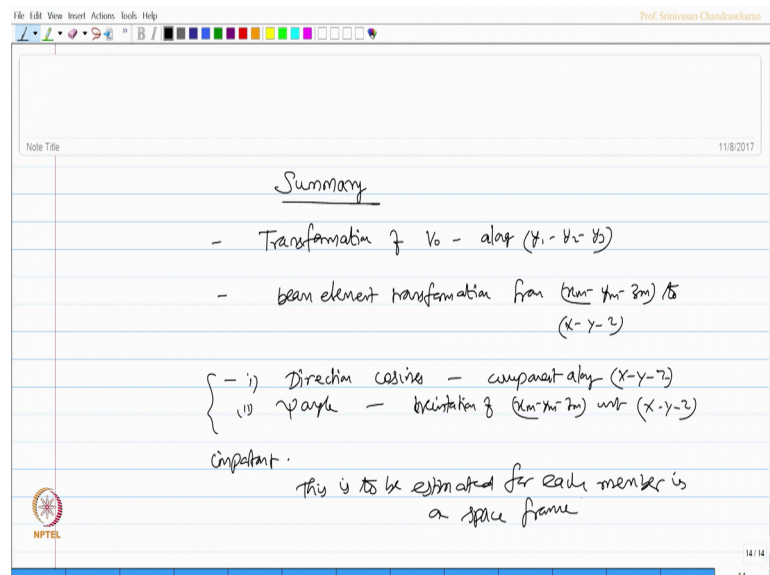 File Edit View Insert Actions Tools Help
Prof. Srinivasan Chandrasekaran
B I
Note Title
11/8/2017
Summary
- Transformation of V₀ - along (y₁ - y₂ - y₃)
- beam element transformation from (xm - ym - zm) to
(x - y - z)
- i) Direction cosines - component along (x - y - z)
(ii) ψ angle - orientation of (xm - ym - zm) wrt (x - y - z)
important.
This is to be estimated for each member is
a space frame
NPTEL
14 / 14